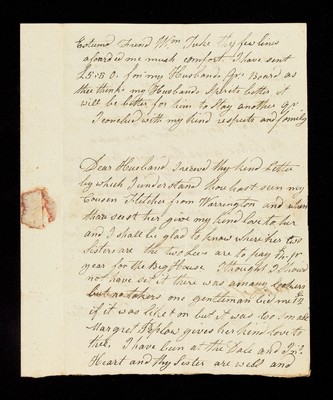 Esteemd Friend Wm Tuke thy few lines
afoarded me mush comfort I have sent
£5:5:0. for my Husbands Qr Board as
thee thinks my Husbands Spirits better it
will be better for him to Stay another Qr
I conclud with my kind respects and family
Dear Husband I receved thy kind Letter
by which I understand thou hast seen my
Cousen Fletcher from Warrington and when
thou seest her give my kind love to her
and I shall be glad to know where her two
Sisters are the two are to pay pr
year for the Brghouse I thought I should
not have set it there was a many lookers
but no takers one gentleman bid me
if it was like him but it was too small
Margret gives her kind love to
thee, I have been at the Dale and
Heart and thy Sister are well and